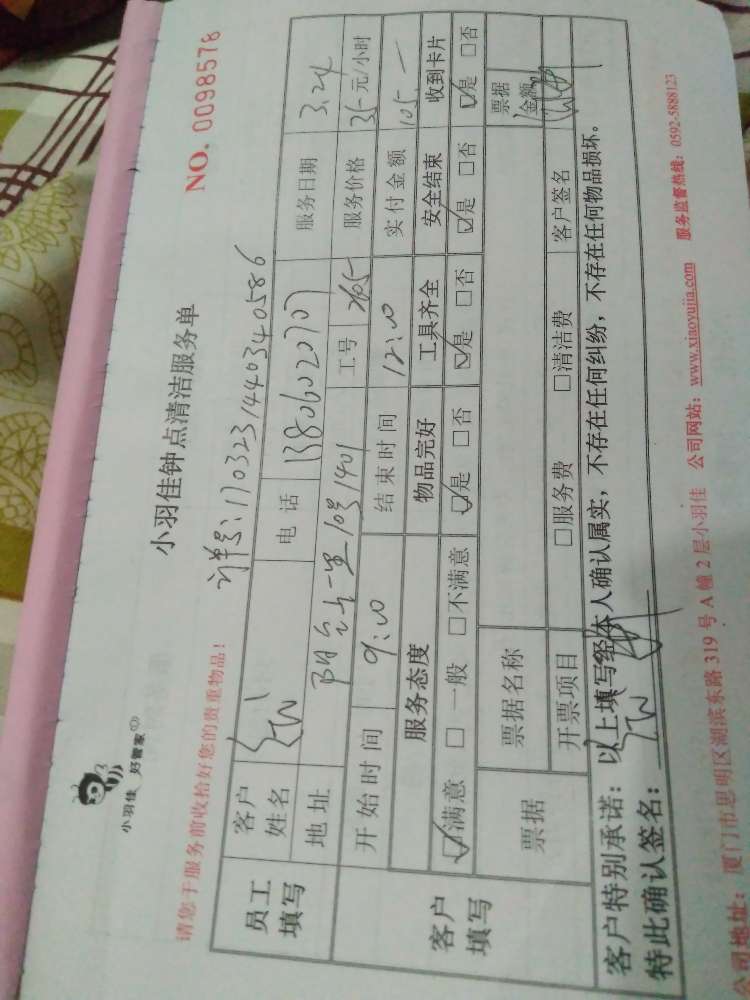 小羽佳 好管家
小羽佳钟点清洁服务单
NO. 0098578
请您于服务前收拾好您的贵重物品!
订单号:1703231440340586
员工填写
客户姓名 电话 13806020707 服务日期 3.24
地址 一里10号1401 工号 2605 服务价格 35元/小时
客户填写
开始时间 9:00 结束时间 12:00 实付金额 105.—
服务态度 物品完好 工具齐全 安全结束 收到卡片
☑满意 □一般 □不满意 ☑是 □否 ☑是 □否 ☑是 □否 ☑是 □否
票据 票据名称 票据金额
开票项目 □服务费 □清洁费 客户签名
客户特别承诺:以上填写经本人确认属实,不存在任何纠纷,不存在任何物品损坏。
特此确认签名:
公司地址:厦门市思明区湖滨东路319号A幢2层小羽佳 公司网站:www.xiaoyujia.com 服务监督热线:0592-5888123